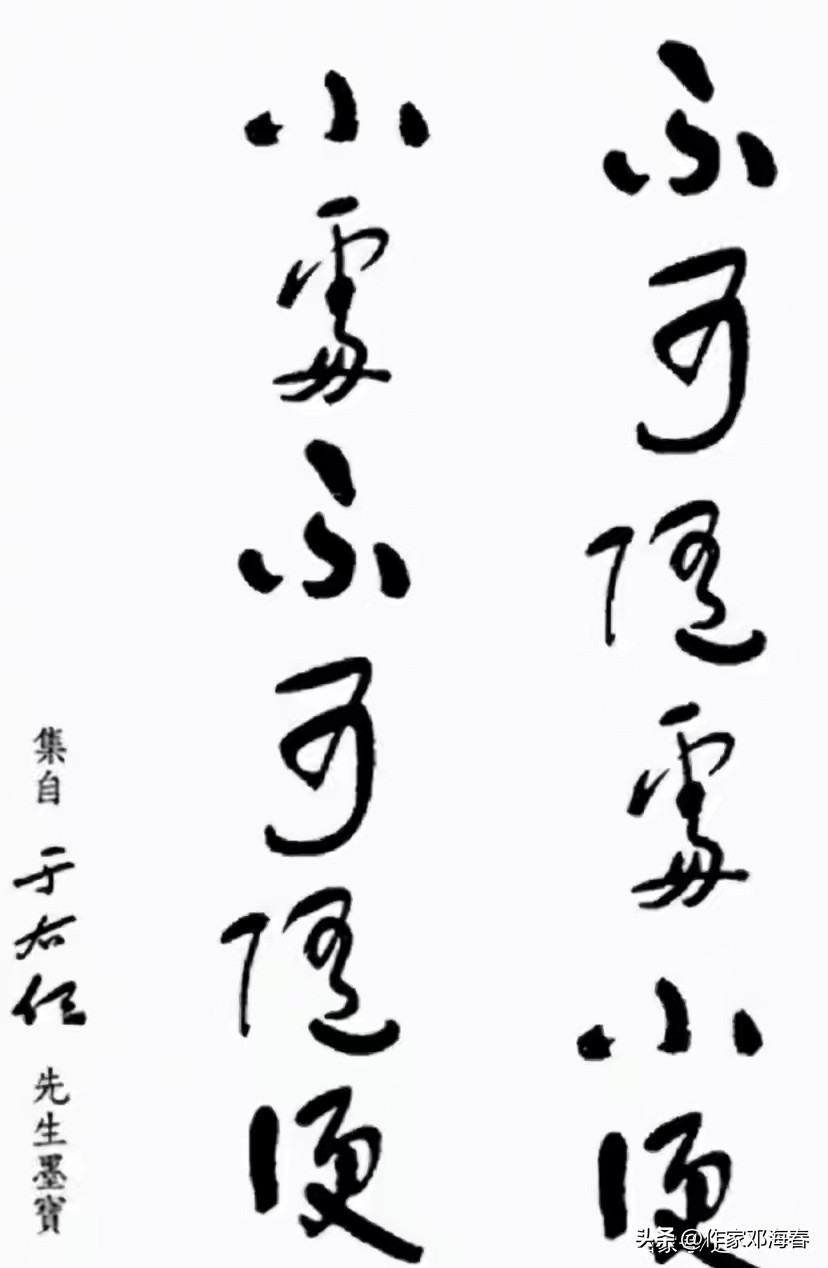 不可随處小便
小處不可随便
集自于右任先生墨寶
头条 @作家邓海春